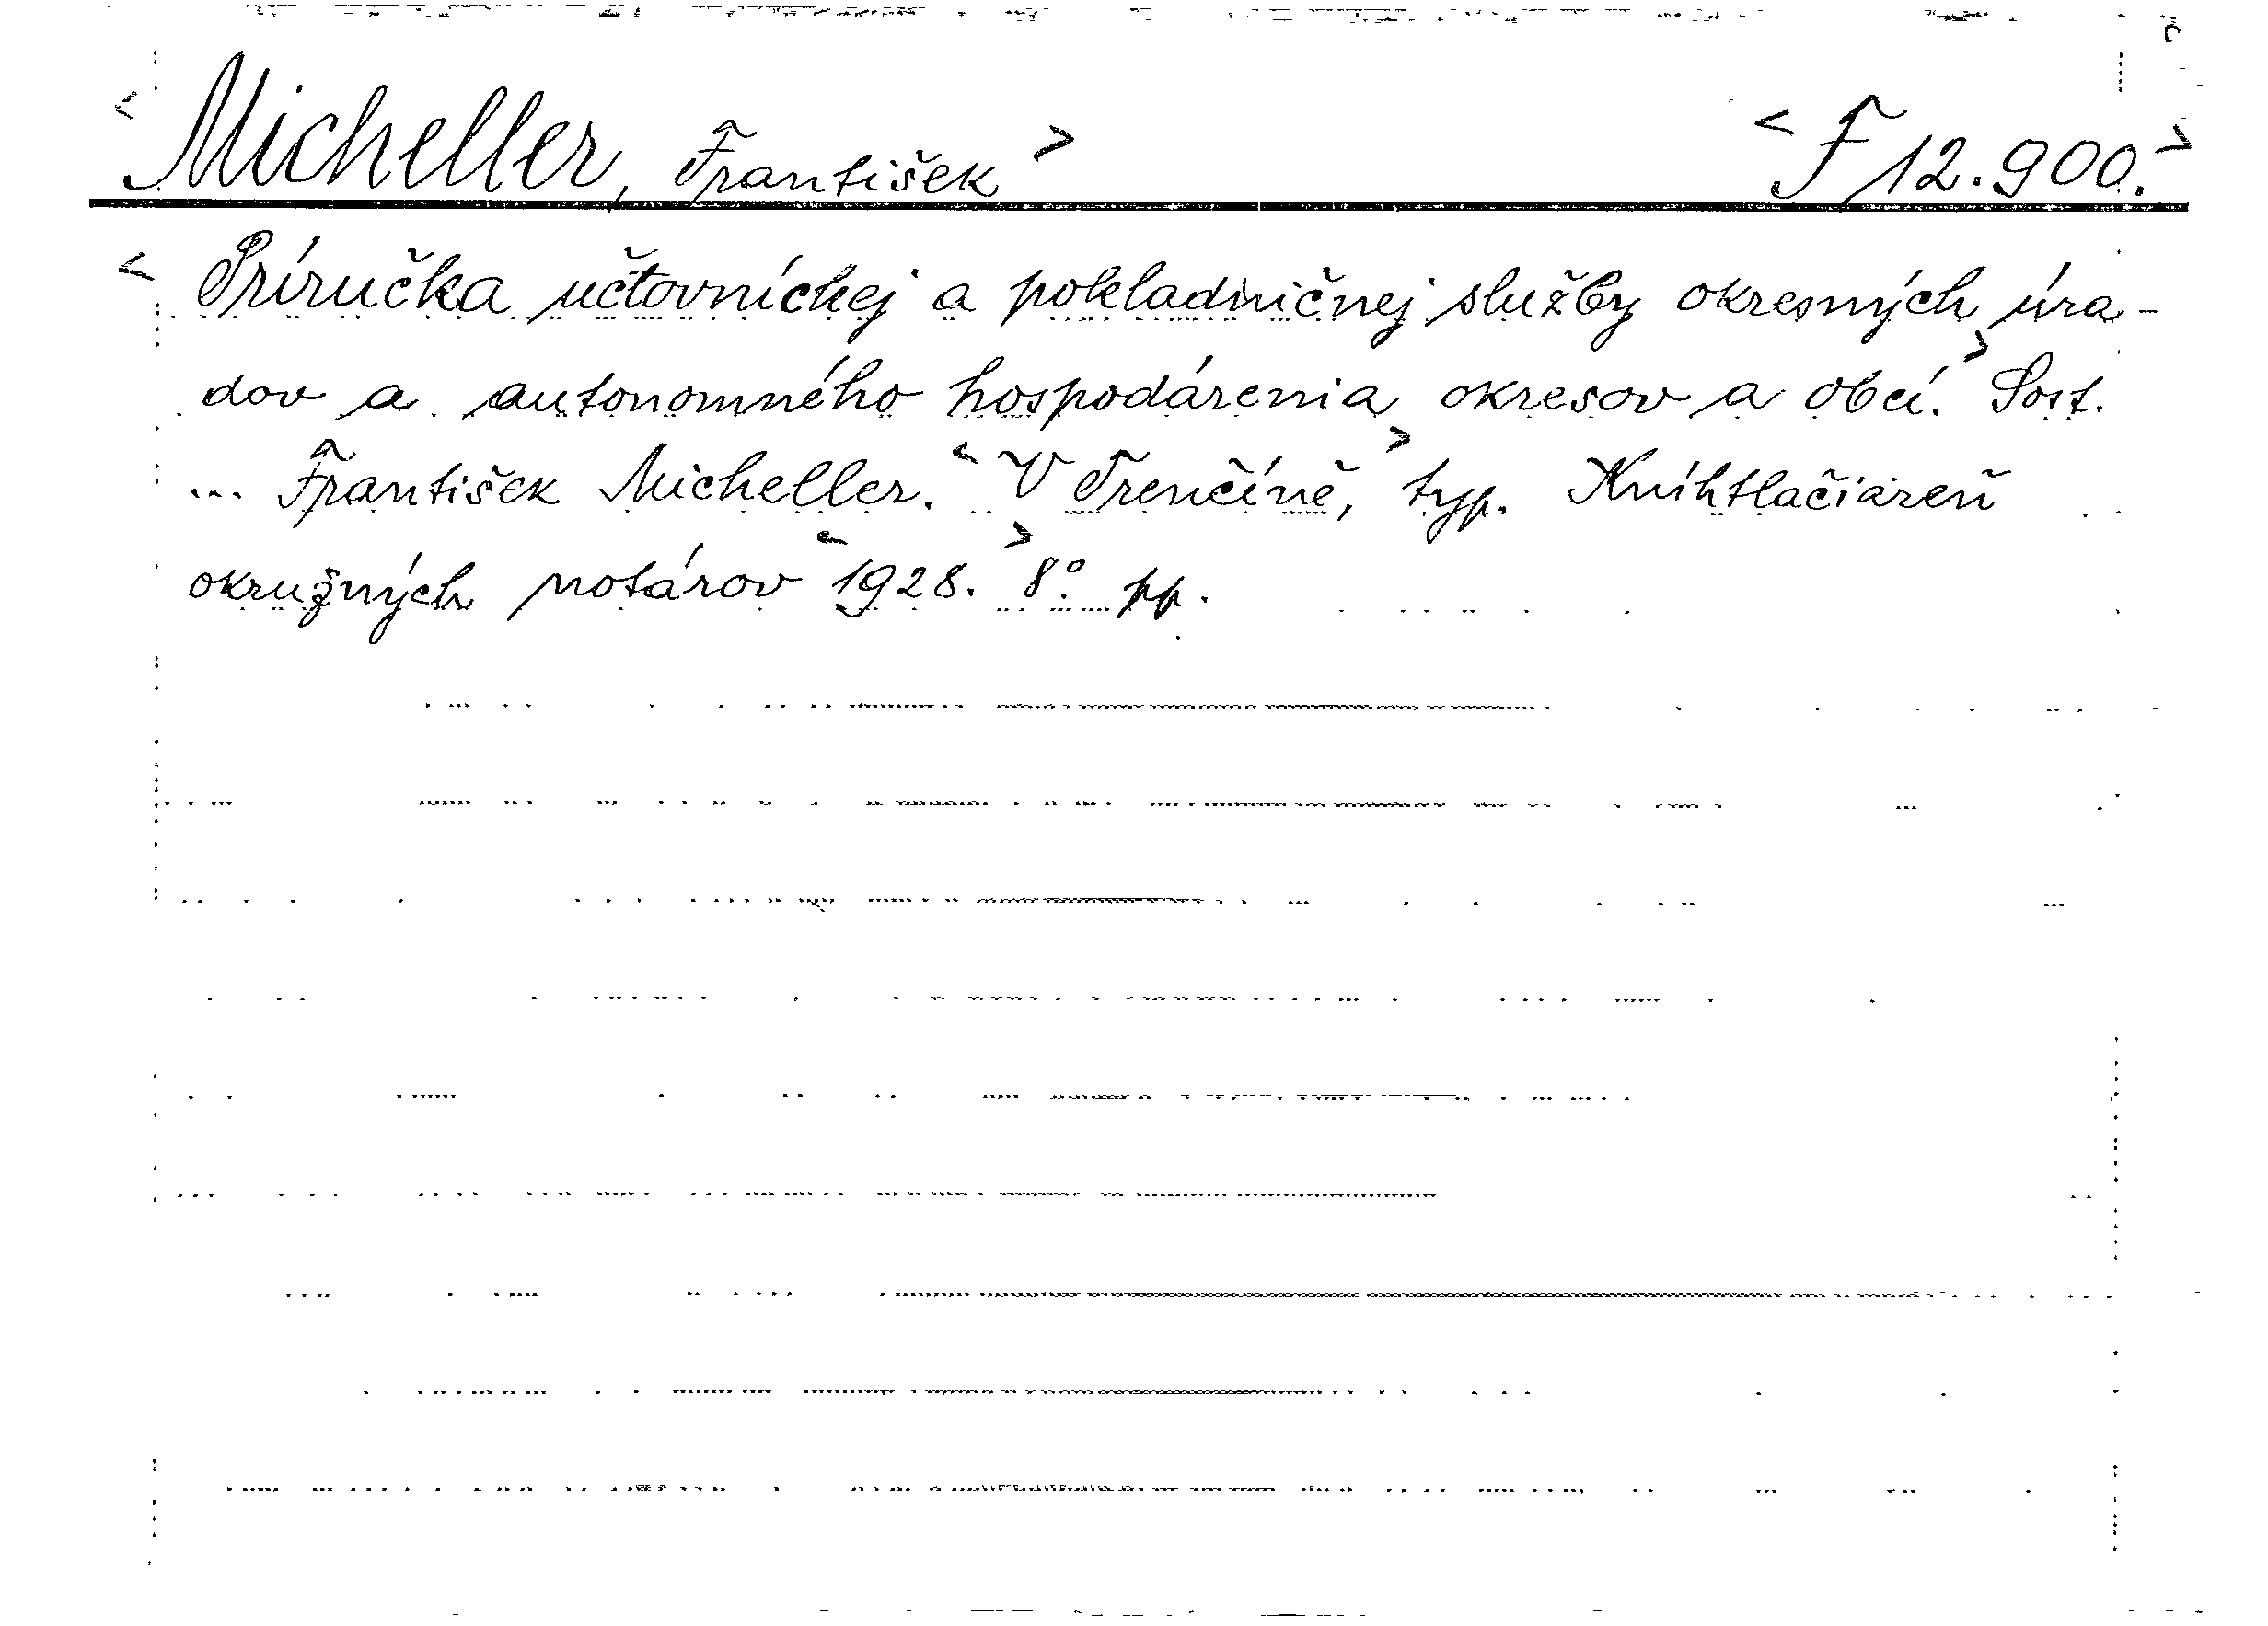 <Micheller, František> <F 12.900.>
<Príručka učtovníckej a pokladničnej služby okresných úra-
dov a autonomného hospodárenia okresov a obcí.> Sost.
... František Micheller. <V Trenčíně,> typ. Knihtlačiareň
okružných notárov <1928.> 8° pp.